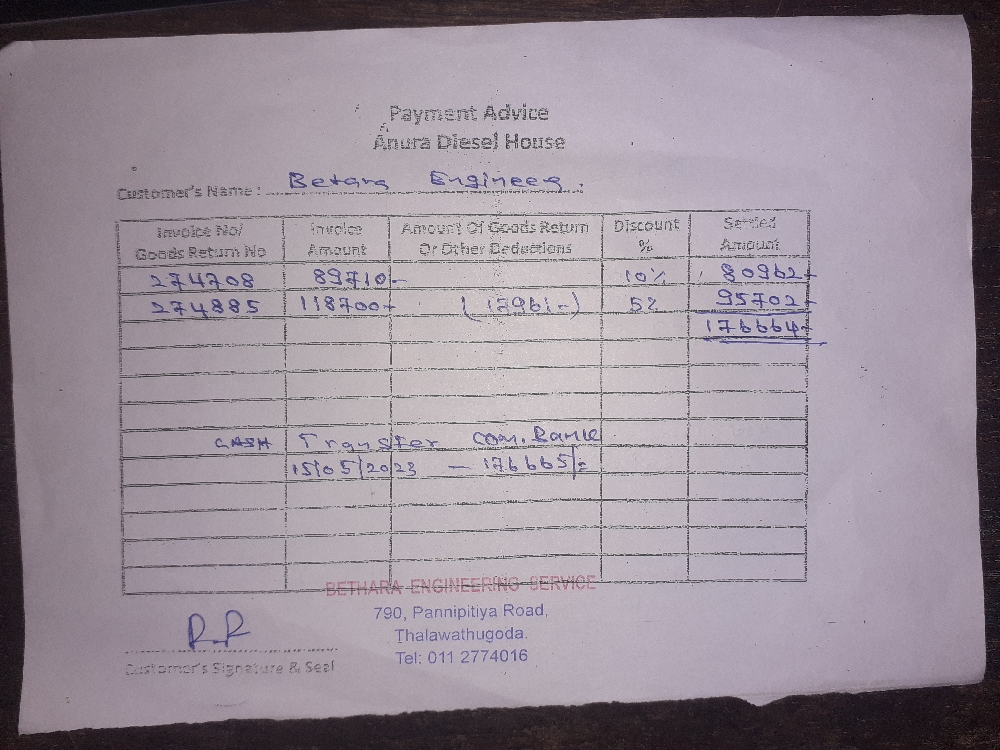 Payment Advice
Anura Diesel House
Customer's Name : Betara Engineers.
Invoice No/ Goods Return No | Invoice Amount | Amount Of Goods Return Or Other Deductions | Discount % | Settled Amount
274708 89710- 10% 80962-
274885 118700- (17961-) 5% 95702-
176664-
CASH Transfer Com. Bank
15/05/2023 - 176665/=
BETHARA ENGINEERING SERVICE
790, Pannipitiya Road,
Thalawathugoda.
Tel: 011 2774016
R.R
Customer's Signature & Seal